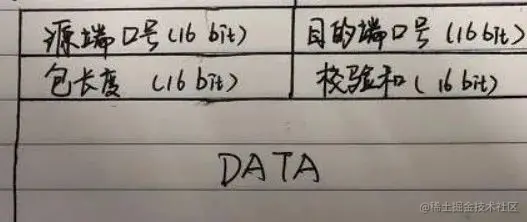 源端口号(16 bit) 目的端口号(16 bit)
包长度 (16 bit) 校验和(16 bit)
DATA
@稀土掘金技术社区